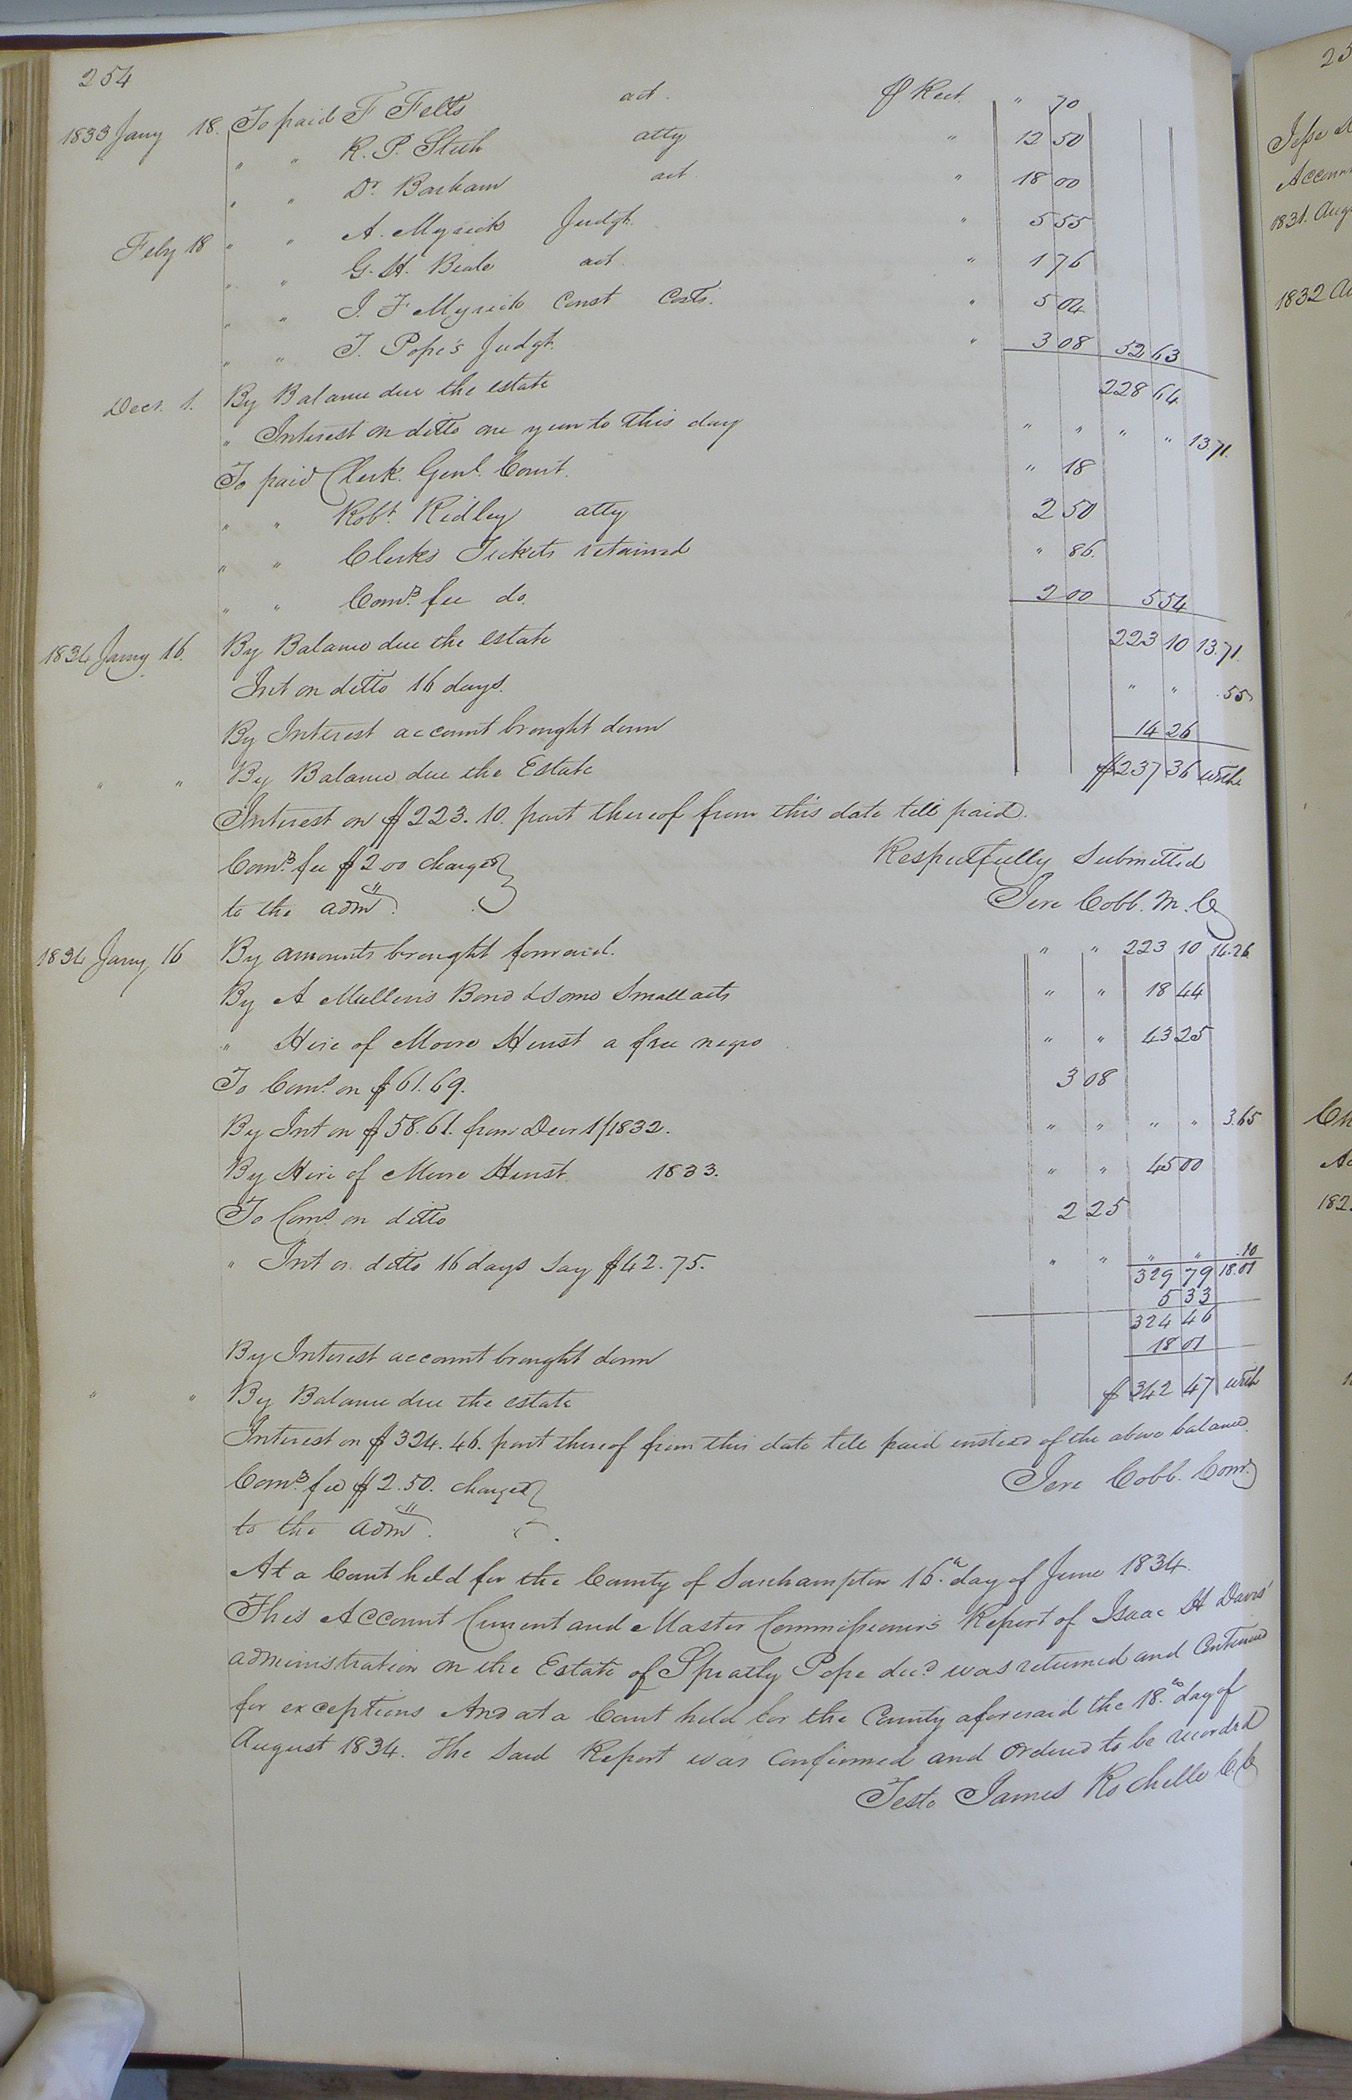 254
1833 Jany 18. To paid F Felts act. pr Rect. " 70
" " R. P. Stith atty " 12 50
" " Dr. Barham act " 18 00
Feby 18 " " A. Myrick Judgt. " 5 55
" " G. H. Beale act. " 1 76
" " J. F Myrick Const Costs. " 5 04
" " T. Pope's Judgt. " 3 08 52 63
Decr. 1. By Balance due the estate 228 64
" Interest on ditto one year to this day " " " " 13.71.
To paid Clerk. Genl. Court. " 18
" " Robt. Ridley atty 2 50
" " Clerks Tickets retained " 86.
" " Comrs. fee do. 2 00 5 54
1834 Jany 16. By Balance due the estate 223 10 13.71.
Int on ditto 16 days. " " .55
By Interest account brought down 14 26
" " By Balance due the Estate $237 36 with
Interest on $223.10. part thereof from this date till paid.
Comrs. fee $2.00 charged
to the admr.
Respectfully Submitted
Jere Cobb. M. C
1834 Jany 16 By amounts brought forward. " " 223 10 14.26
By A Mullens Bond & some Small acts " " 18 44
" Hire of Moore Hurst a free negro " " 43 25
To Coms. on $61.69. 3 08
By Int on $58.61. from Decr 1/1832. " " " " 3.65
By Hire of Moore Hurst. 1833. " " 45 00
To Coms. on ditto 2 25
" Int on ditto 16 days say $42.75. " " " " .10
329 79 18.01
5 33
324 46
By Interest account brought down 18 01
" " By Balance due the estate $342 47 with
Interest on $324.46. part thereof from this date till paid instead of the above balance.
Comrs. fee $2.50. charged
to the admr.
Jere Cobb. Comr.
At a Court held for the County of Southampton 16th. day of June 1834.
This Account Current and Master Commissioner's Report of Isaac H Davis'
administration on the Estate of Spratly Pope decd. was returned and Continued
for exceptions And at a Court held for the County aforesaid the 18.th day of
August 1834. The Said Report was Confirmed and Ordered to be recorded
Teste James Rochelle C.C
25
1831. Aug
1832
182